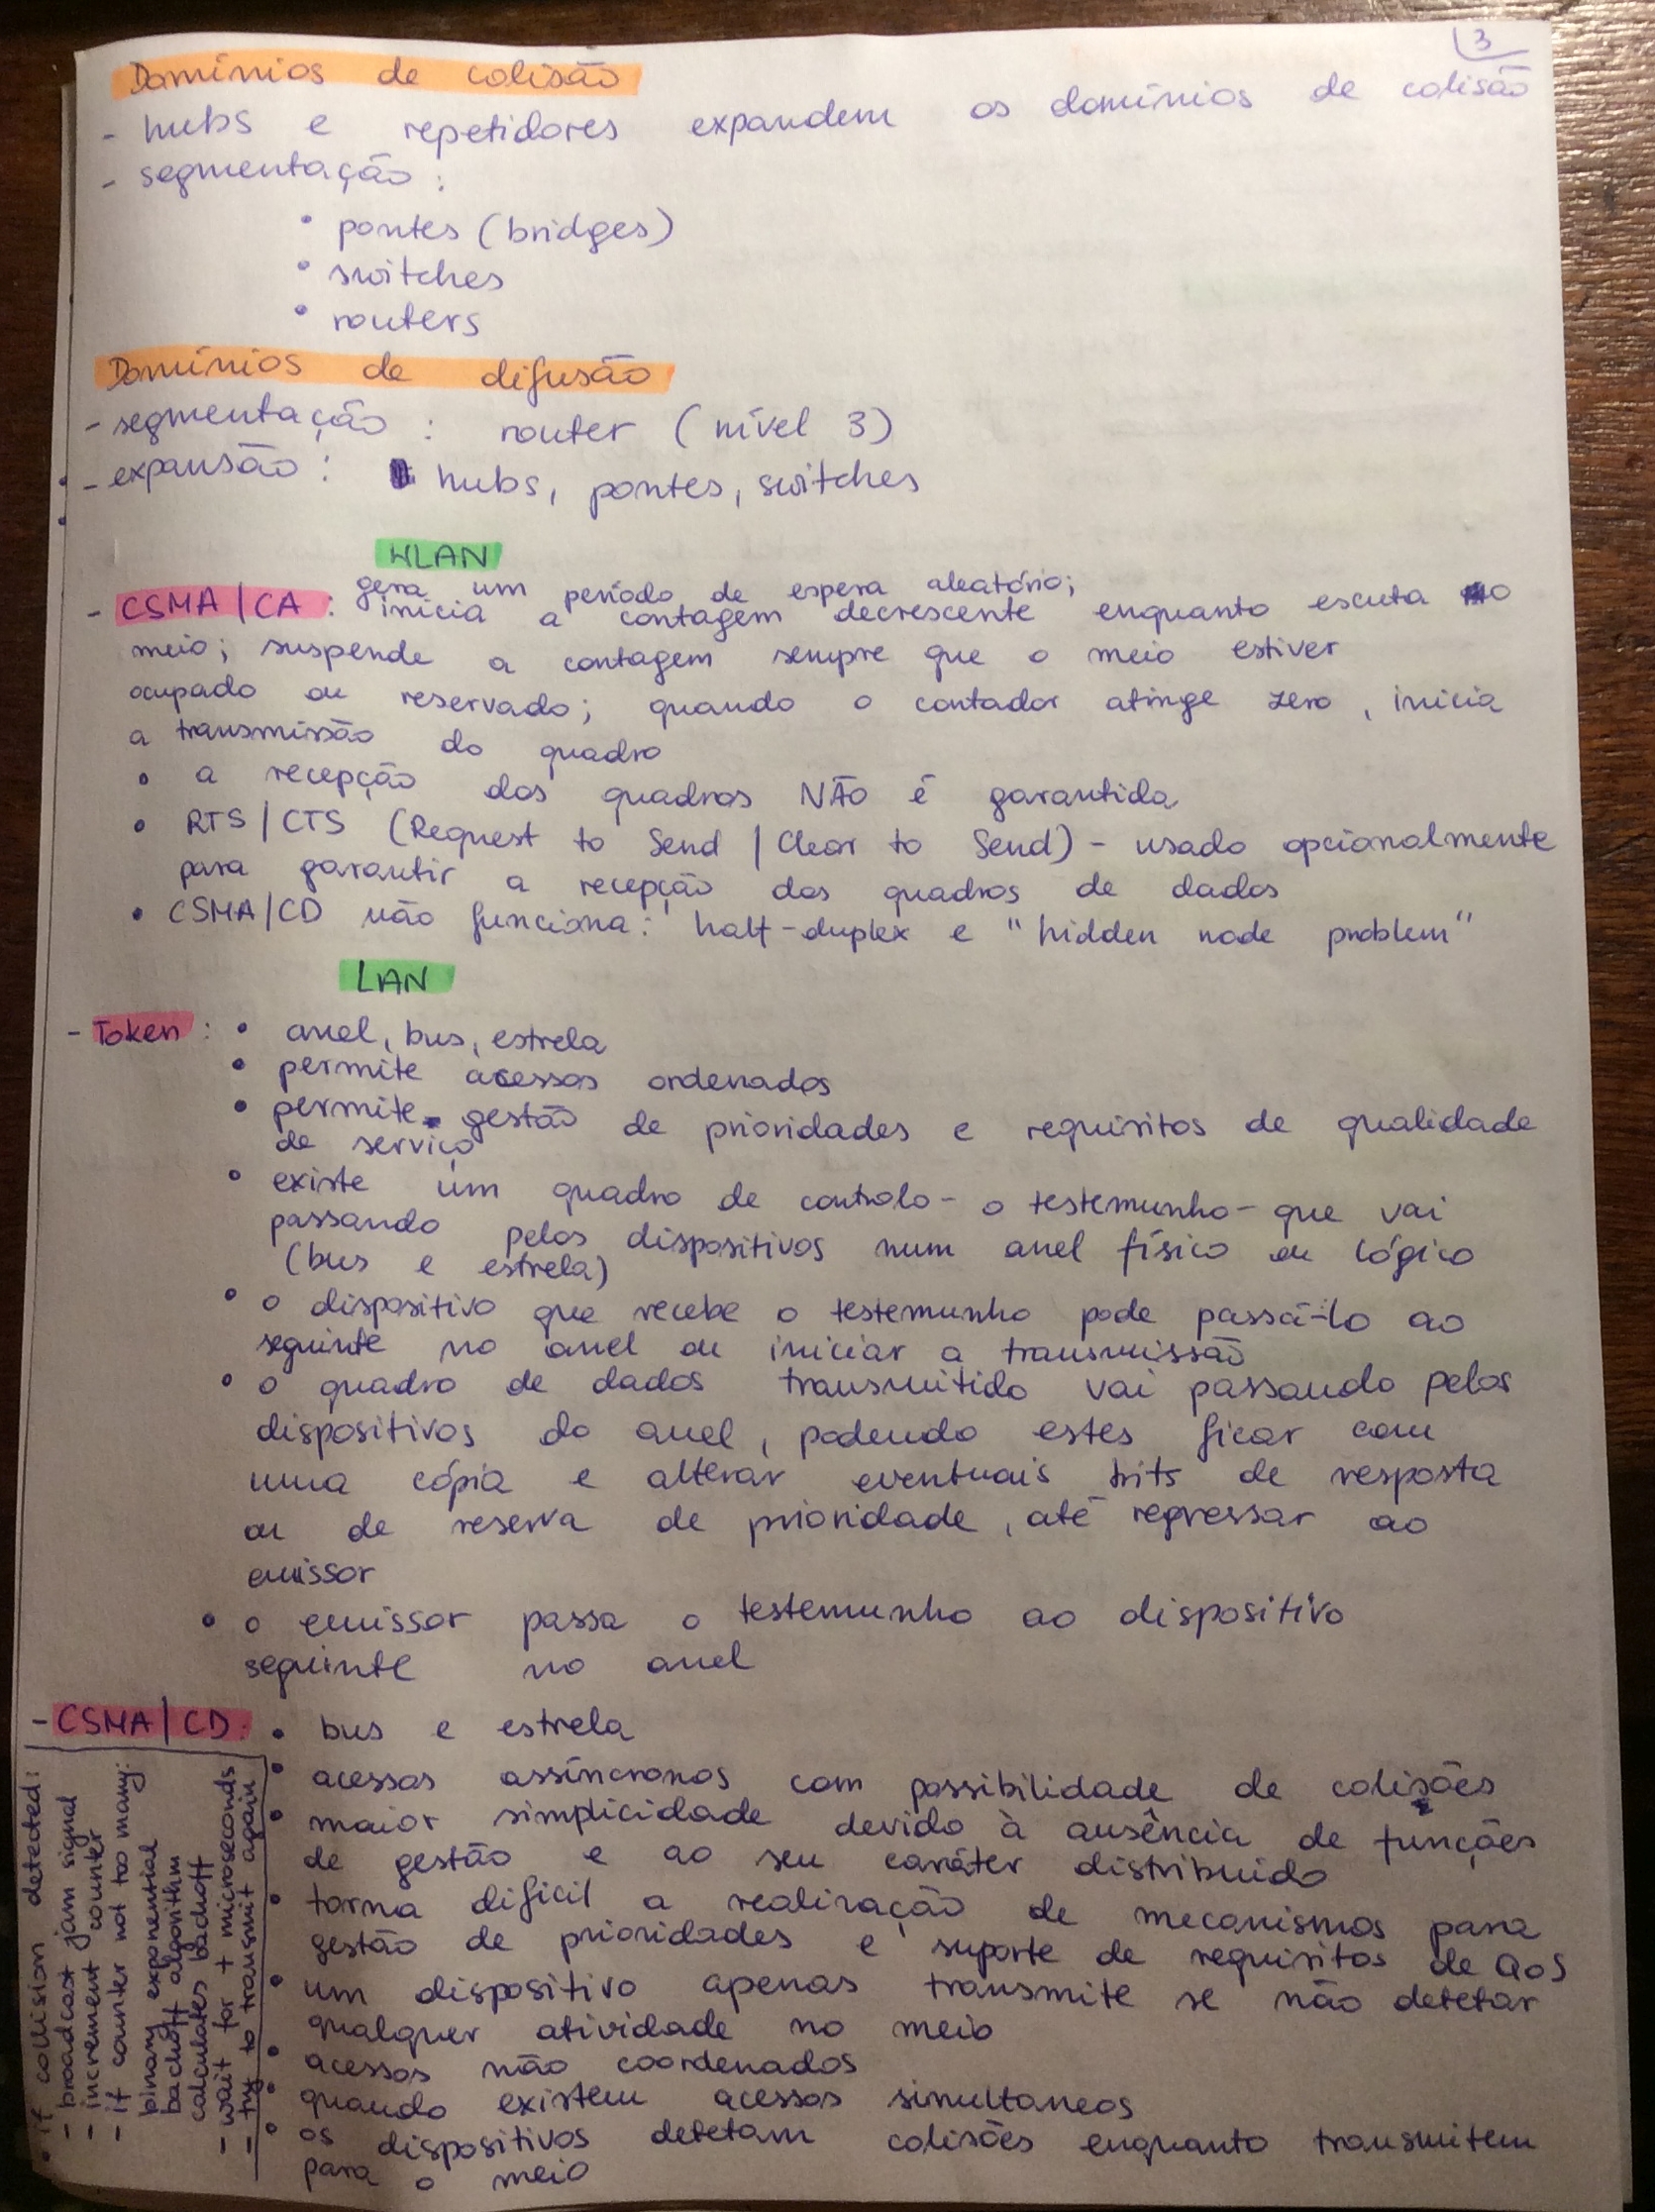 3
Domínios de colisão
- hubs e repetidores expandem os domínios de colisão
- segmentação:
• pontes (bridges)
• switches
• routers
Domínios de difusão
- segmentação: router (nível 3)
- expansão: hubs, pontes, switches
WLAN
- CSMA/CA: gera um período de espera aleatório;
inicia a contagem decrescente enquanto escuta o
meio; suspende a contagem sempre que o meio estiver
ocupado ou reservado; quando o contador atinge zero, inicia
a transmissão do quadro
• a recepção dos quadros NÃO é garantida
• RTS/CTS (Request to Send / Clear to Send) - usado opcionalmente
para garantir a recepção dos quadros de dados
• CSMA/CD não funciona: half-duplex e "hidden node problem"
LAN
- Token: • anel, bus, estrela
• permite acessos ordenados
• permite gestão de prioridades e requisitos de qualidade
de serviço
• existe um quadro de controlo - o testemunho - que vai
passando pelos dispositivos num anel físico ou lógico
(bus e estrela)
• o dispositivo que recebe o testemunho pode passá-lo ao
seguinte no anel ou iniciar a transmissão
• o quadro de dados transmitido vai passando pelos
dispositivos do anel, podendo estes ficar com
uma cópia e alterar eventuais bits de resposta
ou de reserva de prioridade, até regressar ao
emissor
• o emissor passa o testemunho ao dispositivo
seguinte no anel
- CSMA/CD: • bus e estrela
• acessos assíncronos com possibilidade de colisões
• maior simplicidade devido à ausência de funções
de gestão e ao seu caráter distribuído
• torna difícil a realização de mecanismos para
gestão de prioridades e suporte de requisitos de QoS
• um dispositivo apenas transmite se não detetar
qualquer atividade no meio
• acessos não coordenados
• quando existem acessos simultaneos
• os dispositivos detetam colisões enquanto transmitem
para o meio
• if collision detected:
- broadcast jam signal
- increment counter
- if counter not too many:
binary exponential
backoff algorithm
calculates backoff
- wait for t microseconds
- try to transmit again